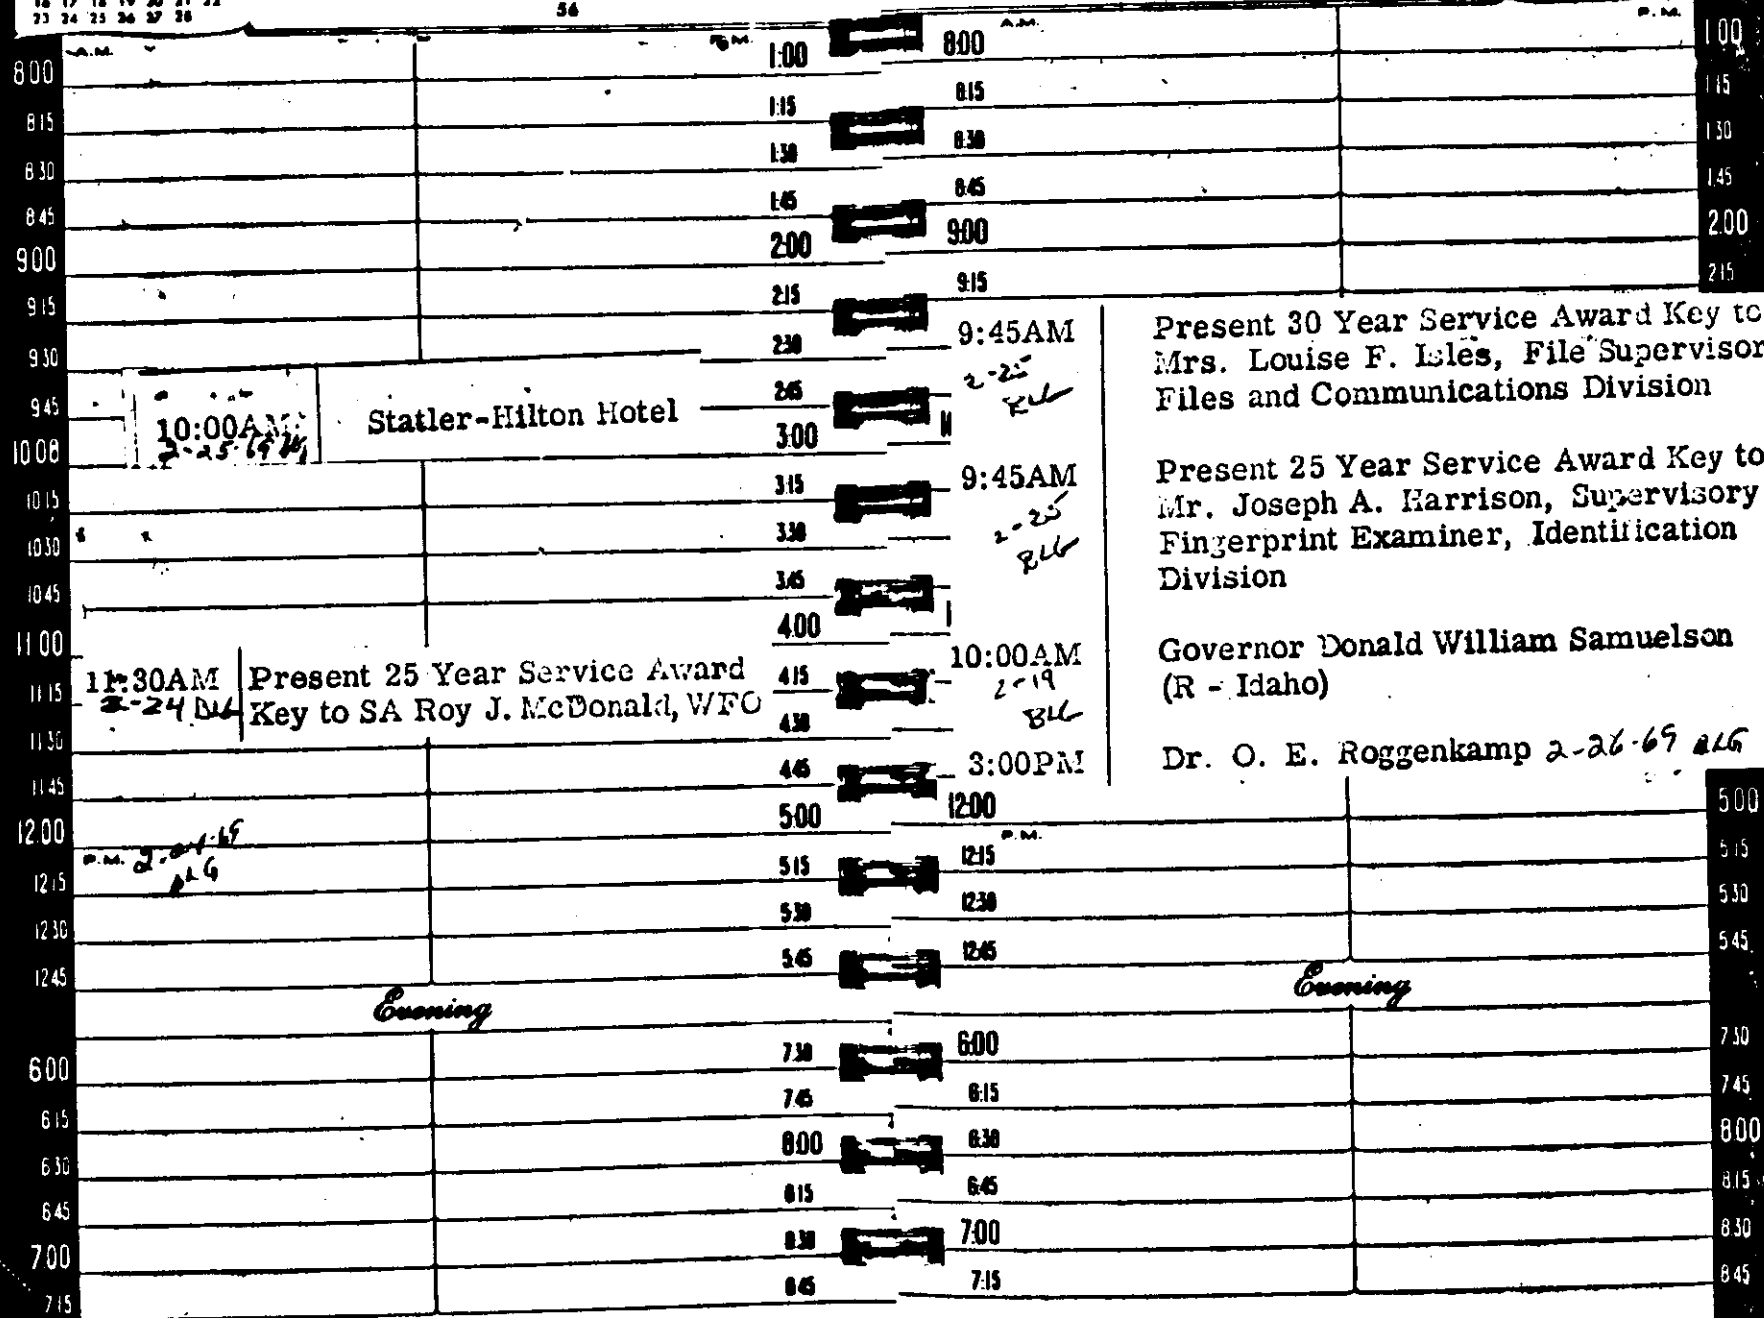 16 17 18 19 20 21 22
23 24 25 26 27 28
56
A.M.
8 00
8 15
8 30
8 45
9 00
9 15
9 30
9 45
10 00
10:00AM
2-25-69
Statler-Hilton Hotel
10 15
10 30
10 45
11 00
11:30AM
2-24 BLG
Present 25 Year Service Award
Key to SA Roy J. McDonald, WFO
11 15
11 30
11 45
12 00
P.M.
BLG
12 15
12 30
12 45
Evening
6 00
6 15
6 30
6 45
7 00
7 15
P.M.
1:00
1:15
1:30
1:45
2:00
2:15
2:30
2:45
3:00
3:15
3:30
3:45
4:00
4:15
4:30
4:45
5:00
5:15
5:30
5:45
7:30
7:45
8:00
8:15
8:30
8:45
A.M.
8:00
8:15
8:30
8:45
9:00
9:15
9:45AM
2-25
BLG
Present 30 Year Service Award Key to
Mrs. Louise F. Isles, File Supervisor
Files and Communications Division
9:45AM
2-25
BLG
Present 25 Year Service Award Key to
Mr. Joseph A. Harrison, Supervisory
Fingerprint Examiner, Identification
Division
10:00AM
2-19
BLG
Governor Donald William Samuelson
(R - Idaho)
3:00PM
Dr. O. E. Roggenkamp 2-26-69 BLG
12:00
P.M.
12:15
12:30
12:45
Evening
6:00
6:15
6:30
6:45
7:00
7:15
P.M.
1 00
1 15
1 30
1 45
2 00
2 15
5 00
5 15
5 30
5 45
7 30
7 45
8 00
8 15
8 30
8 45